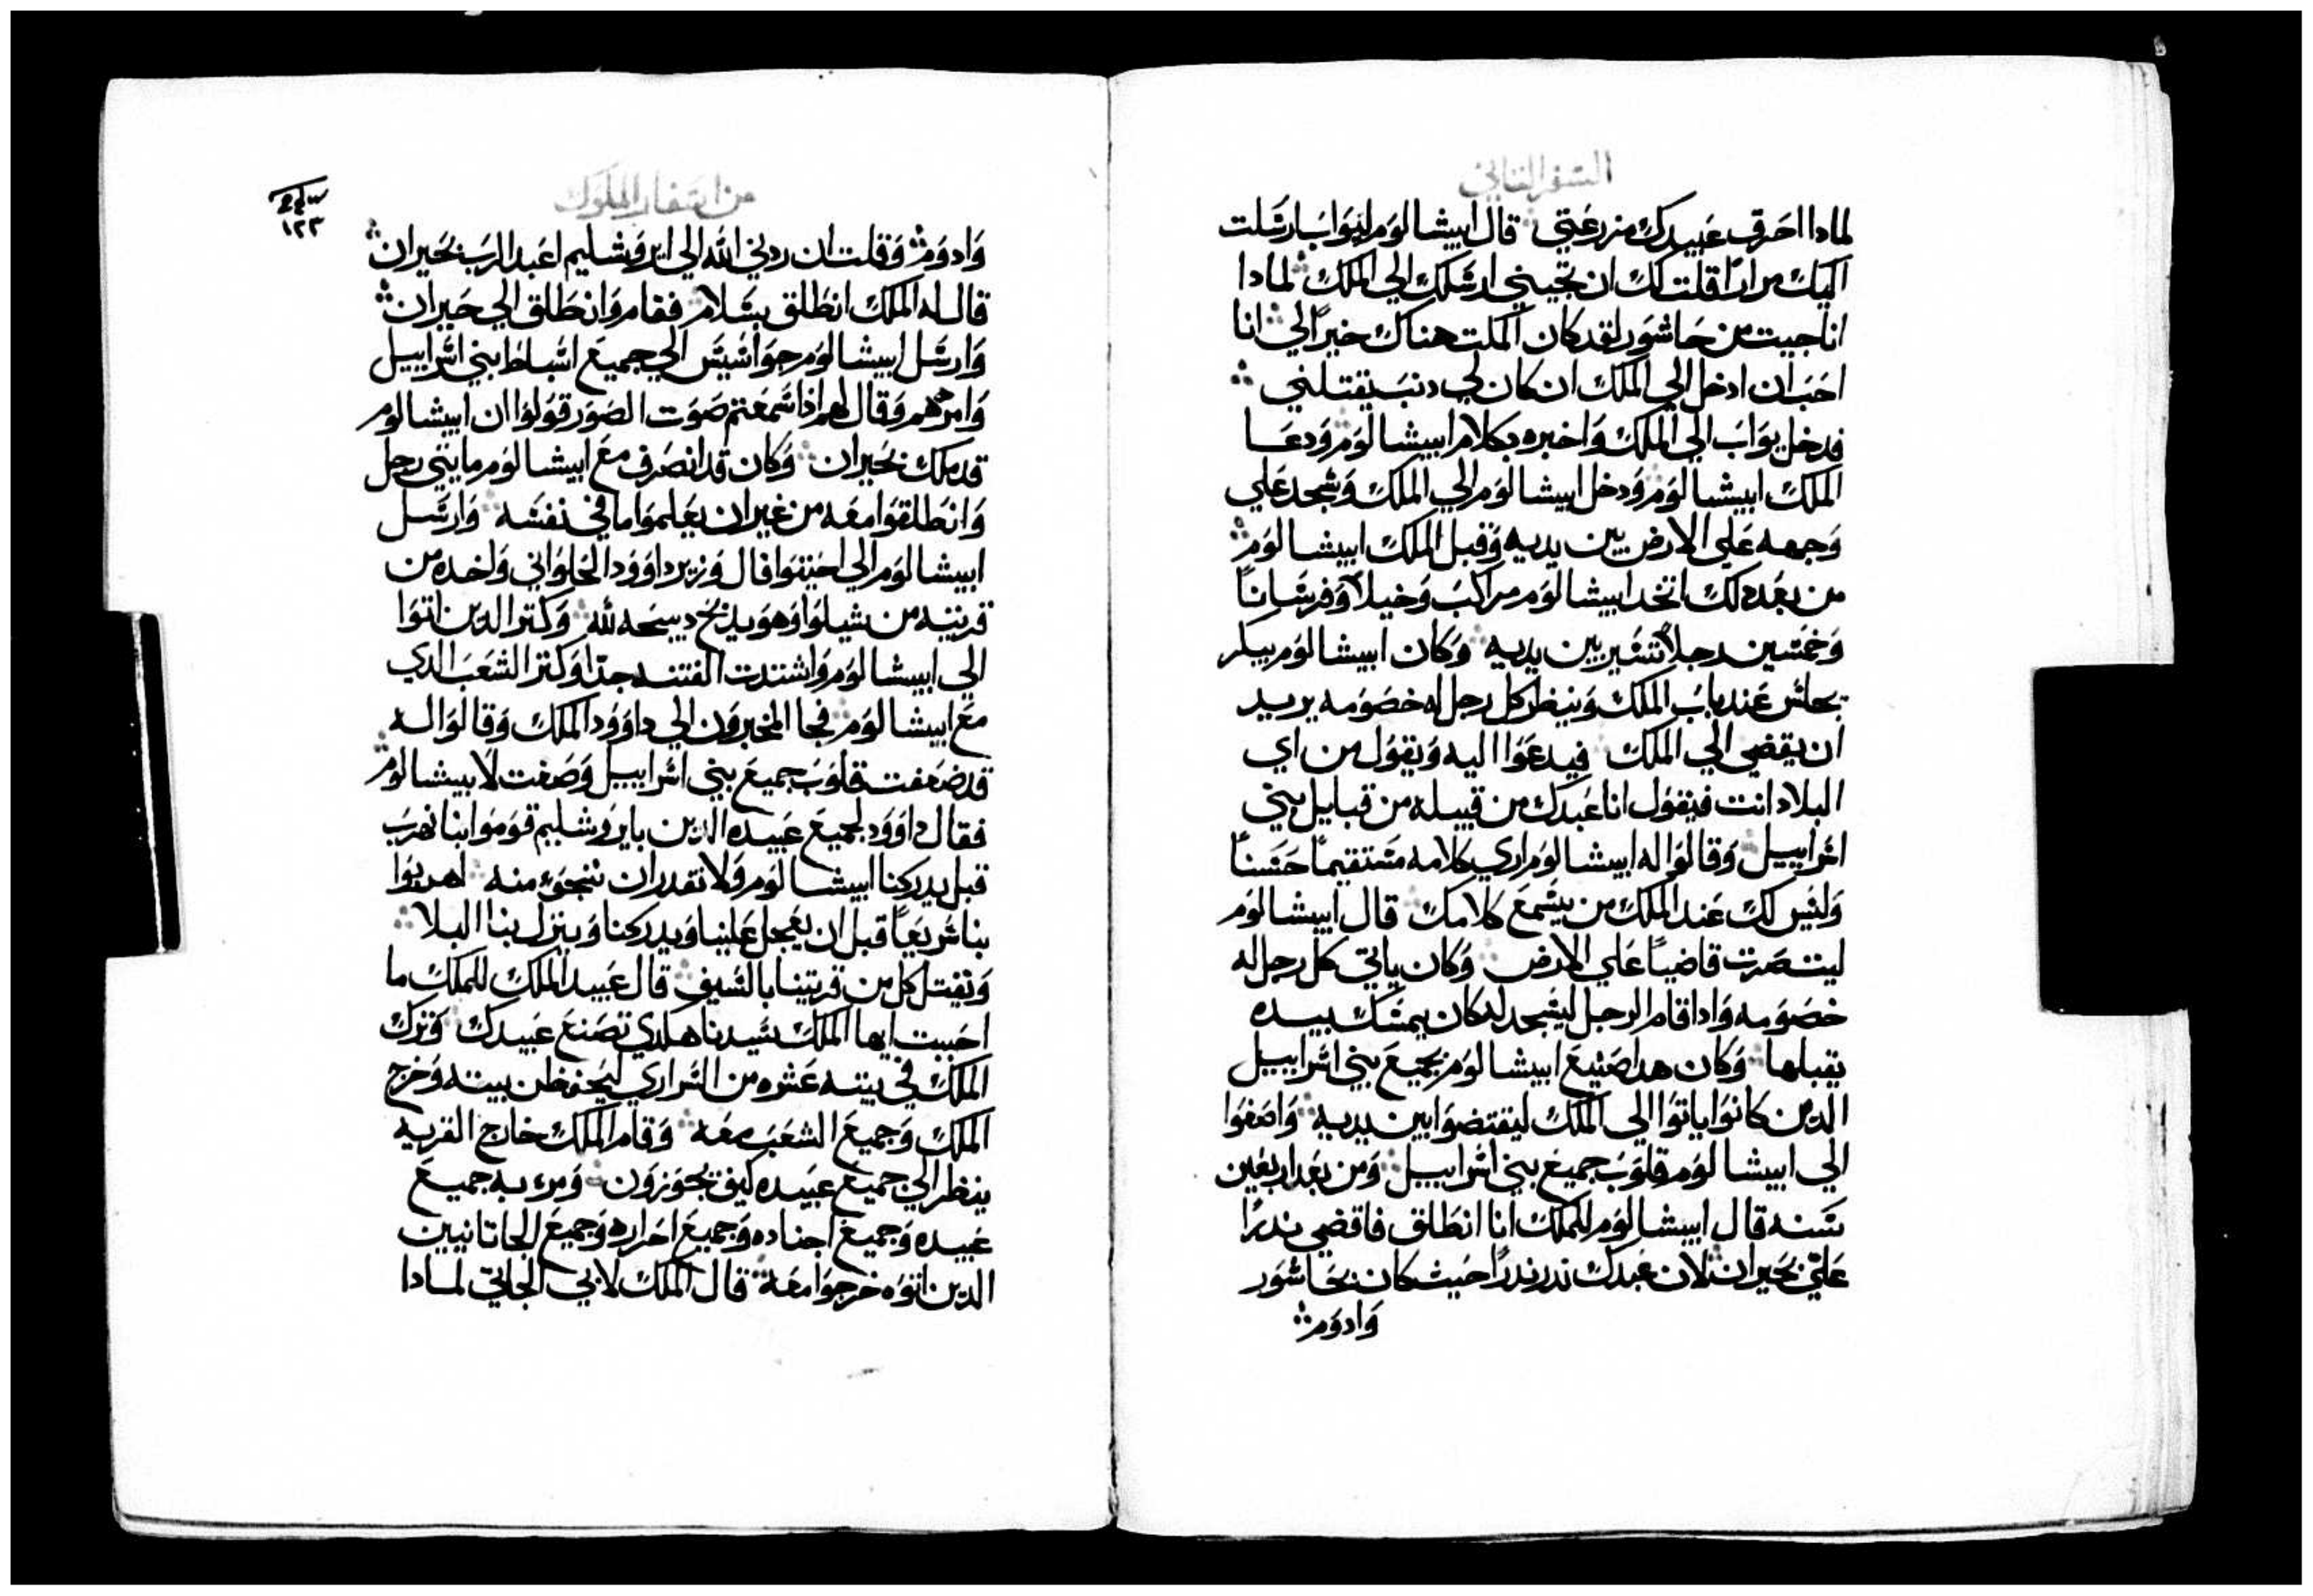 السفر الثاني
لمادا احرق عبيدك مزرعتي قال ابيشالوم ليواب ارسلت
اليك مرارًا قلت لك ان تجيني ارسلك الي الملك لمادا
انا جيت من حاشور لقد كان المكت هناك خيرًا لي انا
احب ان ادخل الي الملك ان كان لي دنب يقتلني
فدخل يواب الي الملك واخبره بكلام ابيشالوم ودعا
الملك ابيشالوم ودخل ابيشالوم الي الملك وسجد علي
وجهه علي الارض بين يديه وقبل الملك ابيشالوم
من بعد دلك اتخد ابيشالوم مراكب وخيلًا وفرسانًا
وخمسين رجلًا تسير بين يديه وكان ابيشالوم يبكر
يجلس عند باب الملك وينظر كل رجل له خصومه يريد
ان يقضي الي الملك فيدعوا اليه ويقول من اي
البلاد انت فيقول انا عبدك من قبيله من قبايل بني
اسراييل وقالوا له ابيشالوم اري كلامه مستقيمًا حسنًا
وليس لك عند الملك من يسمع كلامك قال ابيشالوم
ليت صرت قاضيًا علي الارض وكان ياتي كل رجل له
خصومه وادا قام الرجل ليسجد له كان يمسك بيده
يقبلها وكان هدا صنيع ابيشالوم بجميع بني اسراييل
الدين كانوا ياتوا الي الملك ليقتضوا بين يديه واصغوا
الي ابيشالوم قلوب جميع بني اسراييل ومن بعد اربعين
سنه قال ابيشالوم للملك انا انطلق فاقضي ندرًا
علي بحيران لان عبدك ندر ندرًا حيث كان بحاشور
وادوم
من اسفار الملوك
١٢٣
وادوم وقلت ان ردني الله الي ايروشليم اعبد الرب بحيران
قال له الملك انطلق بسلام فقام وانطلق الي حيران
وارسل ابيشالوم جواسيس الي جميع اسباط بني اسراييل
وامرهم وقال لهم اذا سمعتم صوت الصور قولوا ان ابيشالوم
قد ملك بحيران وكان قد انصرف مع ابيشالوم مايتي رجل
وانطلقوا معه من غير ان يعلموا ما في نفسه وارسل
ابيشالوم الي احيتوافال وزير داوود الخلواني واخده من
قريته من شيلوا وهو يدبح دبيحه لله وكتر الدين اتوا
الي ابيشالوم واشتدت الفتنه جدًا وكتر الشعب الدي
مع ابيشالوم فجا المخبرون الي داوود الملك وقالوا له
قد ضعفت قلوب جميع بني اسراييل وصغت لابيشالوم
فقال داوود لجميع عبيده الدين بايروشليم قوموا بنا نهرب
قبل يدركنا ابيشالوم ولا نقدر ان ننجوء منه اهربوا
بنا سريعًا قبل ان يعجل علينا ويدركنا وينزل بنا البلا
ونقتل كل من قريتنا بالسيف قال عبيد الملك للملك ما
احببت ايها الملك سيدنا هكدي تصنع عبيدك وترك
الملك في بيته عشره من السراري ليحفظن بيته وخرج
الملك وجميع الشعب معه وقام الملك خارج القريه
ينظر الي جميع عبيده كيف يجوزون ومر به جميع
عبيده وجميع اجناده وجميع احراره وجميع الجاتانيين
الدين اتوه خرجوا معه قال الملك لابي الجاتي لمادا